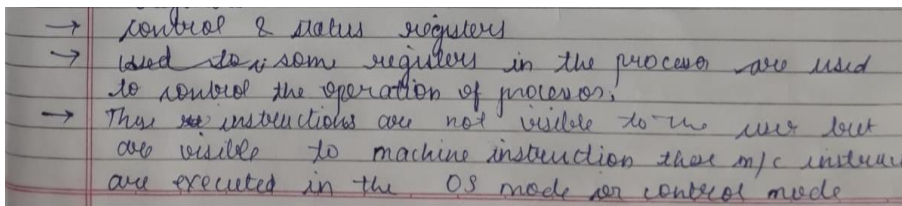 → control & status registers
→ used to, some registers in the processor are used
to control the operation of processor,
→ These instructions are not visible to the user but
are visible to machine instruction these m/c instruc
are executed in the OS mode or control mode